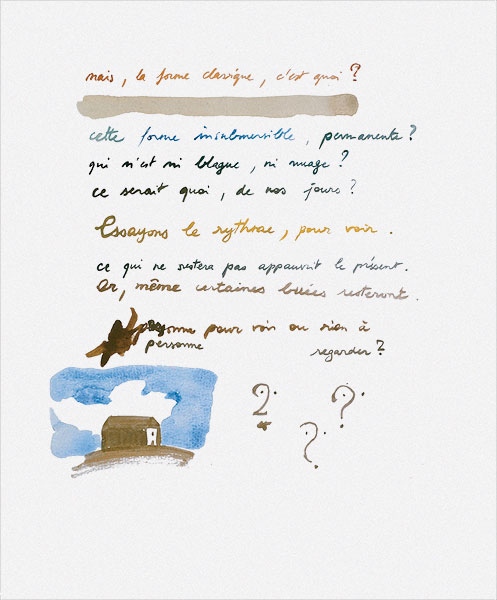 mais, la forme classique, c'est quoi ?
cette forme insubmersible, permanente ?
qui n'est ni blague, ni nuage ?
ce serait quoi, de nos jours ?
Essayons le rythme, pour voir.
ce qui ne restera pas appauvrit le présent.
Or, même certaines buées resteront.
personne pour voir ou rien à
personne regarder ?
? ? ?